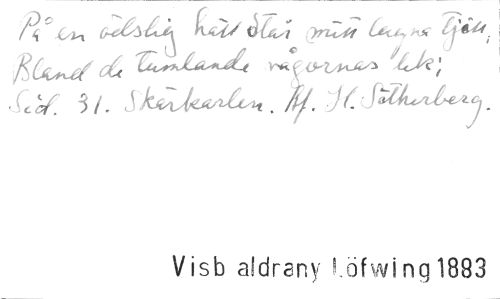 På en ödslig häll står mitt lugna tjäll,
Bland de tumlande vågornas lek;
Sid. 31. Skärkarlen. Af. H. Sätherberg.
Visb aldrany Löfwing 1883